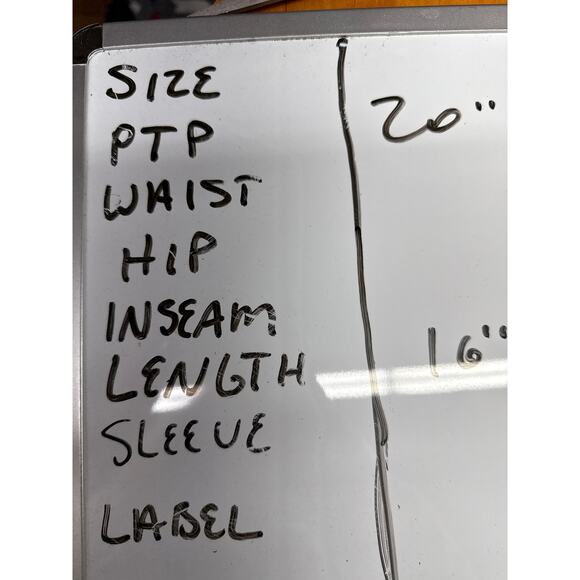 SIZE
PTP 20"
WAIST
HIP
INSEAM
LENGTH 16"
SLEEVE
LABEL